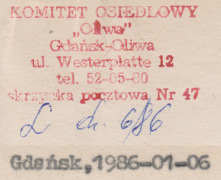 KOMITET OSIEDLOWY
„Oliwa"
Gdańsk-Oliwa
ul. Westerplatte 12
tel. 52-05-80
skrzynka pocztowa Nr 47
L. dz. 6/86
Gdańsk, 1986-01-06